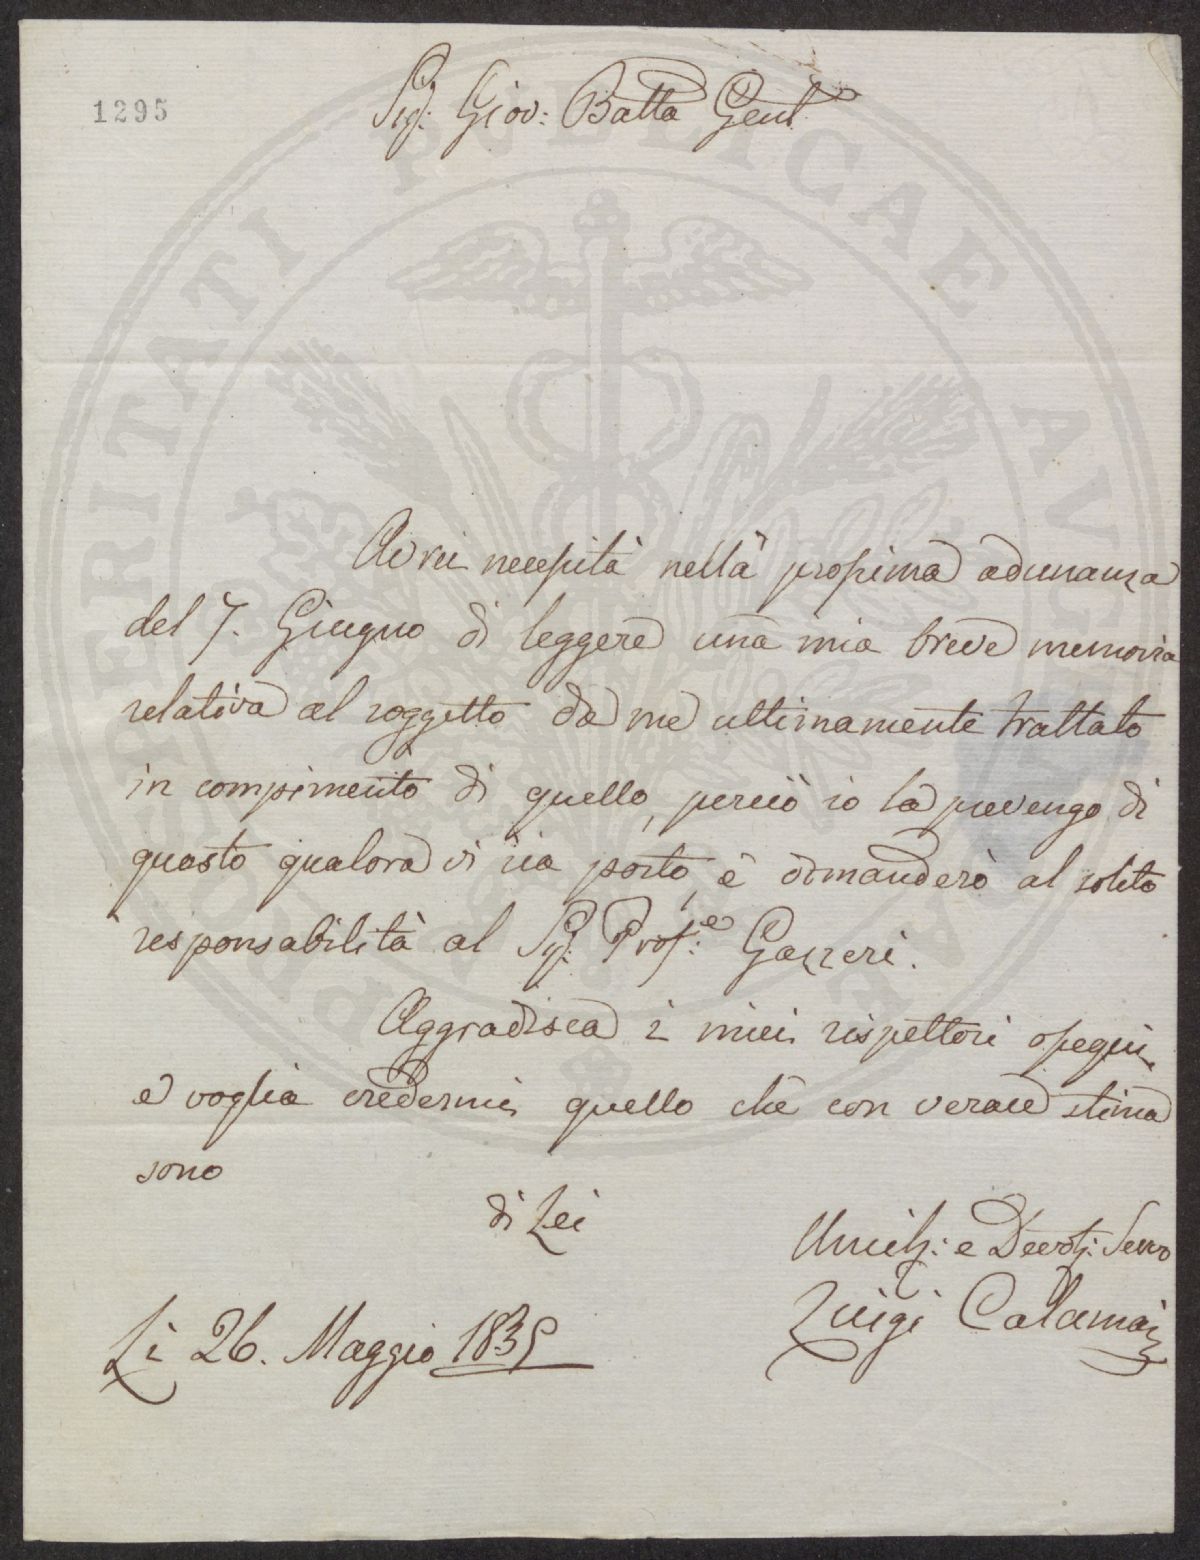 1295
Sig: Giov: Batta Gent
Avrei necessità nella prossima adunanza
del 7. Giugno di leggere una mia breve memoria
relativa al soggetto da me ultimamente trattato
in compimento di quello, perciò io la prevengo di
questo qualora vi sia posto, e domanderò al solito
responsabilità al Sig: Prof:e Gazzeri.
Aggradisca i miei rispettosi ossequi,
e voglia credermi quello che con verace stima
sono
di Lei
Umils: e Devots: Servo
Luigi Calamai
Li 26. Maggio 1835
PROSPERITATI PVBLICAE AVGENDAE